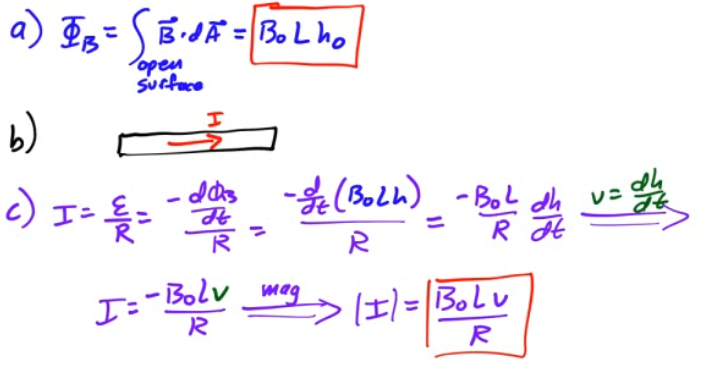 a) Φ_B = ∫_{open surface} B⃗·dA⃗ = B₀Lh₀
b) I
c) I = ε/R = (-dΦ_B/dt)/R = (-d/dt (B₀Lh))/R = -B₀L/R dh/dt v = dh/dt ⟹
I = -B₀Lv/R mag ⟹ |I| = B₀Lv/R